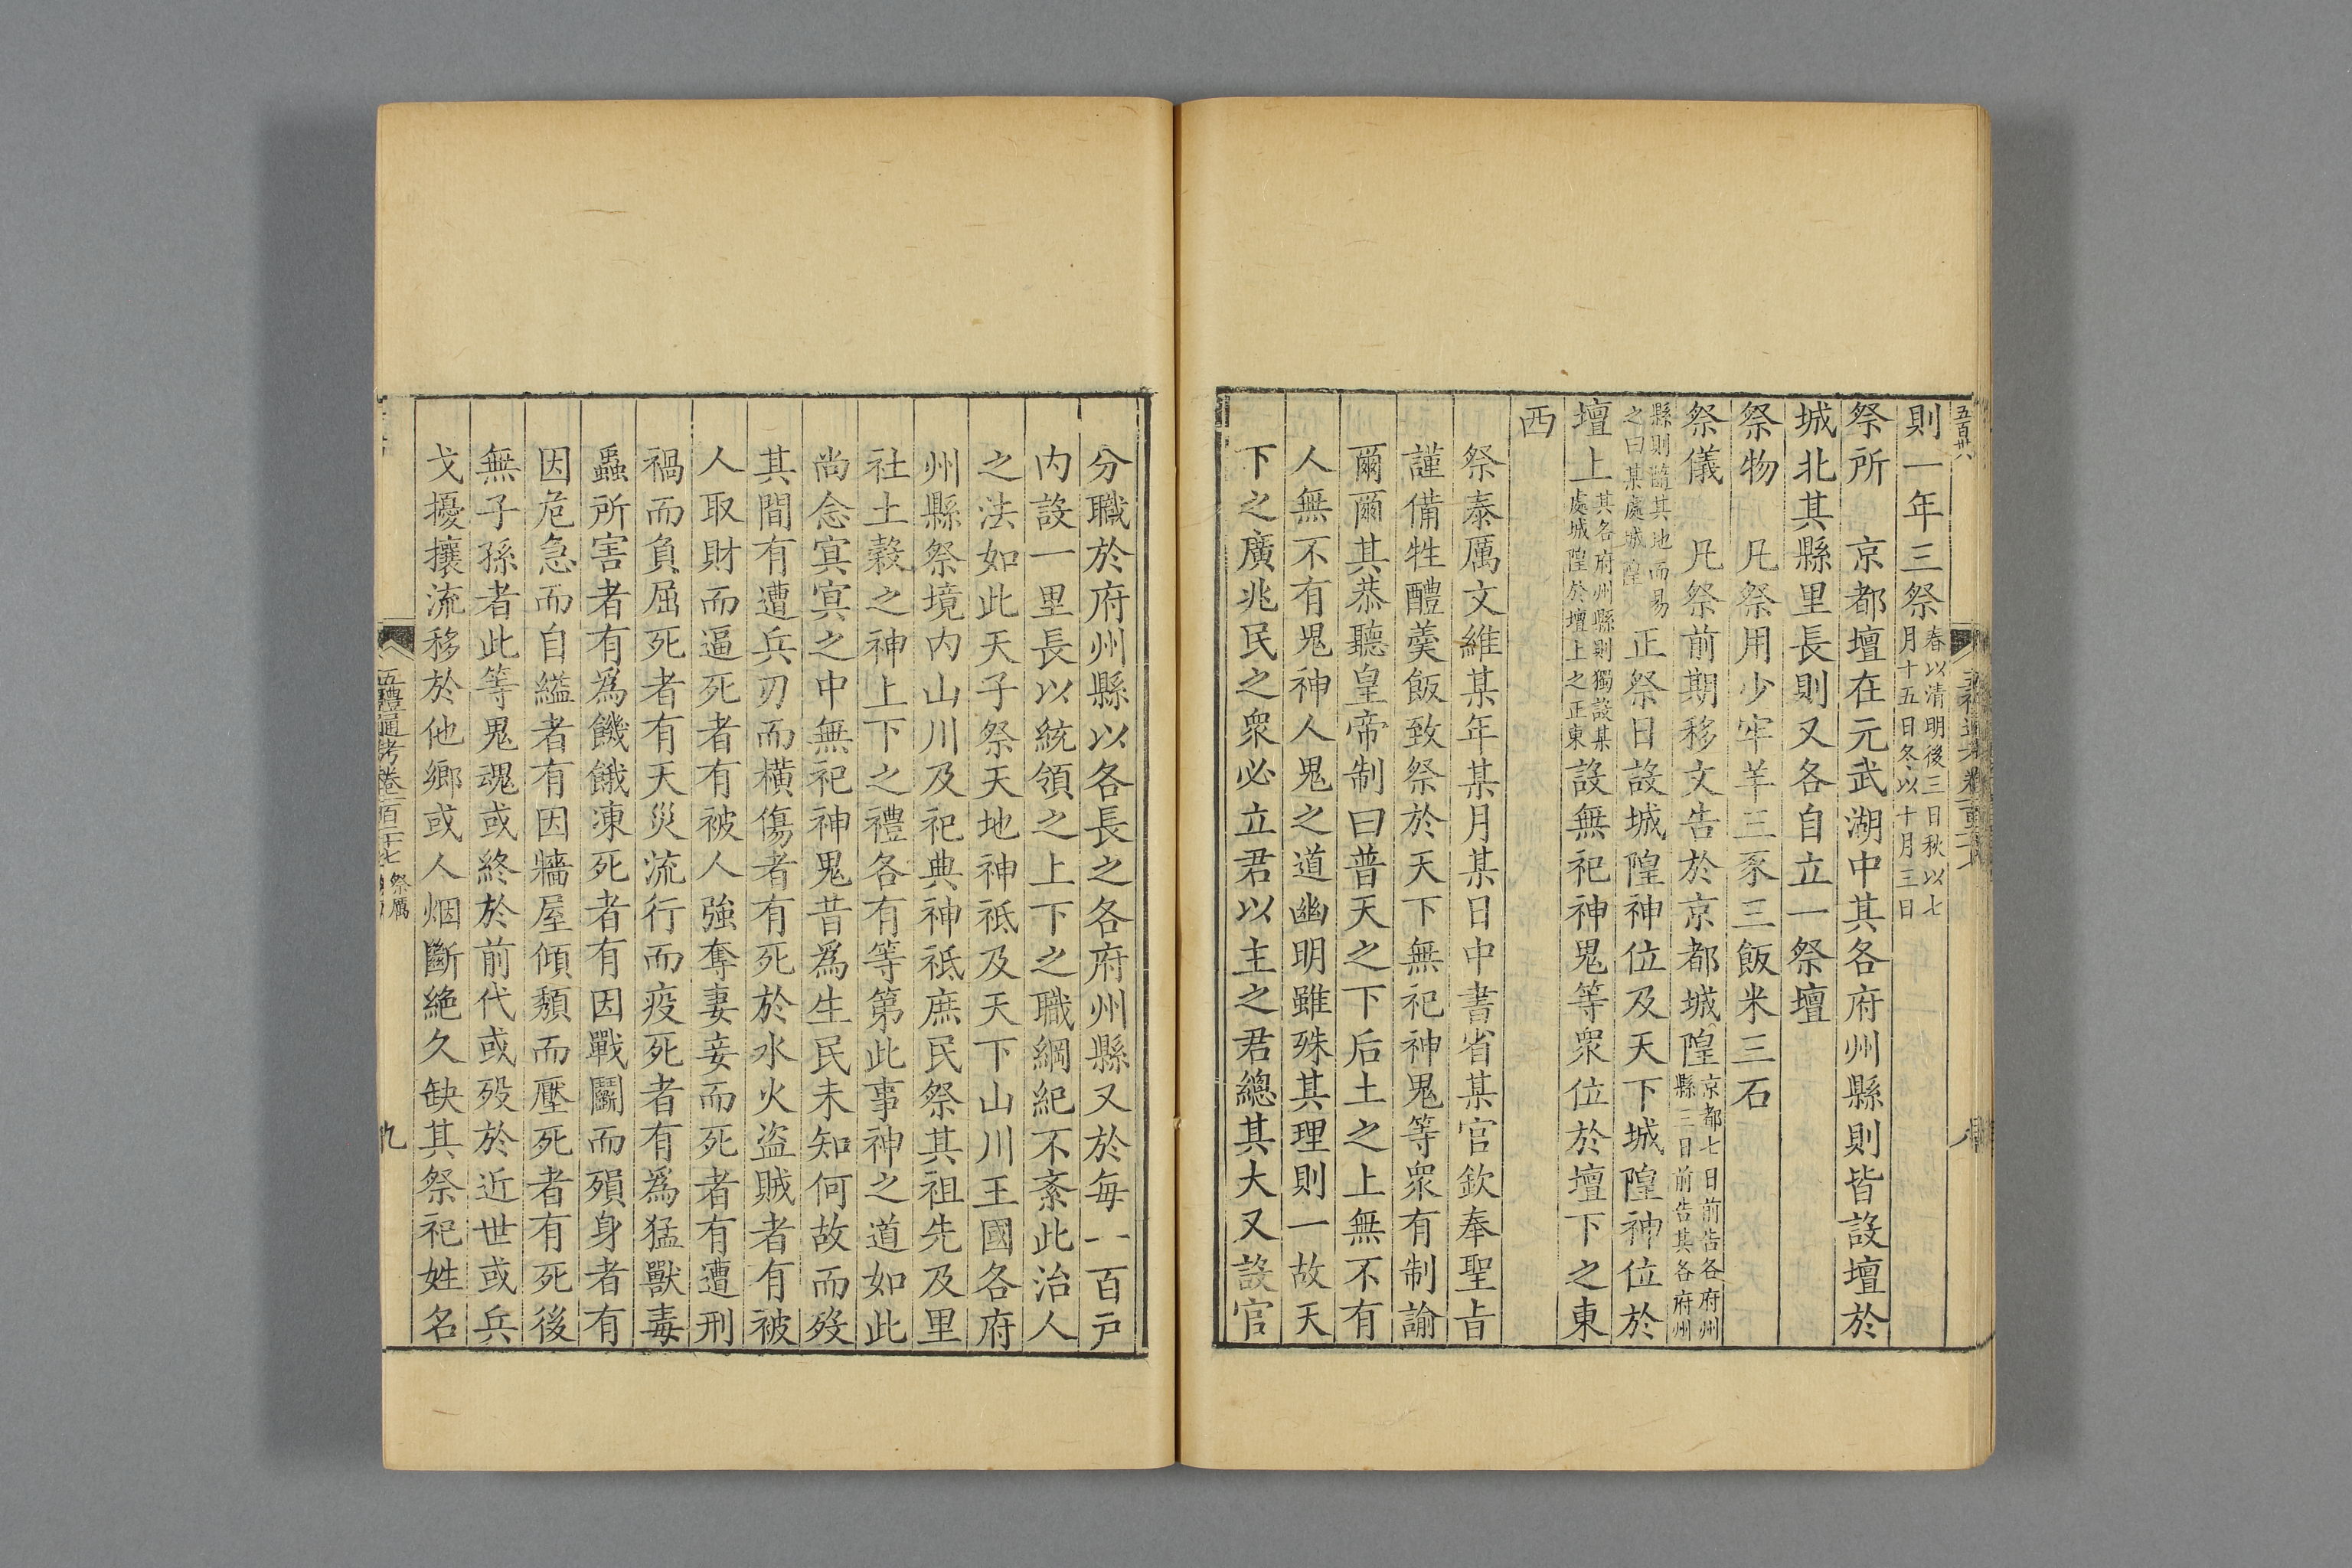 五百卅八
則一年三祭春以清明後三日秋以七
月十五日冬以十月三日
祭所　京都壇在元武湖中其各府州縣則皆設壇於
城北其縣里長則又各自立一祭壇
祭物　凡祭用少牢羊三豕三飯米三石
祭儀　凡祭前期移文告於京都城隍京都七日前告各府州
縣三日前告其各府州
縣則隨其地而易
之曰某處城隍正祭日設城隍神位及天下城隍神位於
壇上其各府州縣則獨設某
處城隍於壇上之正東設無祀神鬼等衆位於壇下之東
西
祭泰厲文維某年某月某日中書省某官欽奉聖旨
謹備牲醴羹飯致祭於天下無祀神鬼等衆有制諭
爾爾其恭聽皇帝制曰普天之下后土之上無不有
人無不有鬼神人鬼之道幽明雖殊其理則一故天
下之廣兆民之衆必立君以主之君總其大又設官
分職於府州縣以各長之各府州縣又於每一百戸
内設一里長以統領之上下之職綱紀不紊此治人
之法如此天子祭天地神祗及天下山川王國各府
州縣祭境内山川及祀典神祗庶民祭其祖先及里
社土穀之神上下之禮各有等第此事神之道如此
尚念㝠㝠之中無祀神鬼昔爲生民未知何故而歿
其間有遭兵刃而橫傷者有死於水火盗賊者有被
人取財而逼死者有被人強奪妻妾而死者有遭刑
禍而負屈死者有天災流行而疫死者有爲猛獸毒
蟲所害者有爲饑餓凍死者有因戰鬭而殞身者有
因危急而自縊者有因牆屋傾頽而壓死者有死後
無子孫者此等鬼魂或終於前代或歿於近世或兵
戈擾攘流移於他鄉或人烟斷絶久缺其祭祀姓名
五禮通考卷一百二十七　祭厲　九